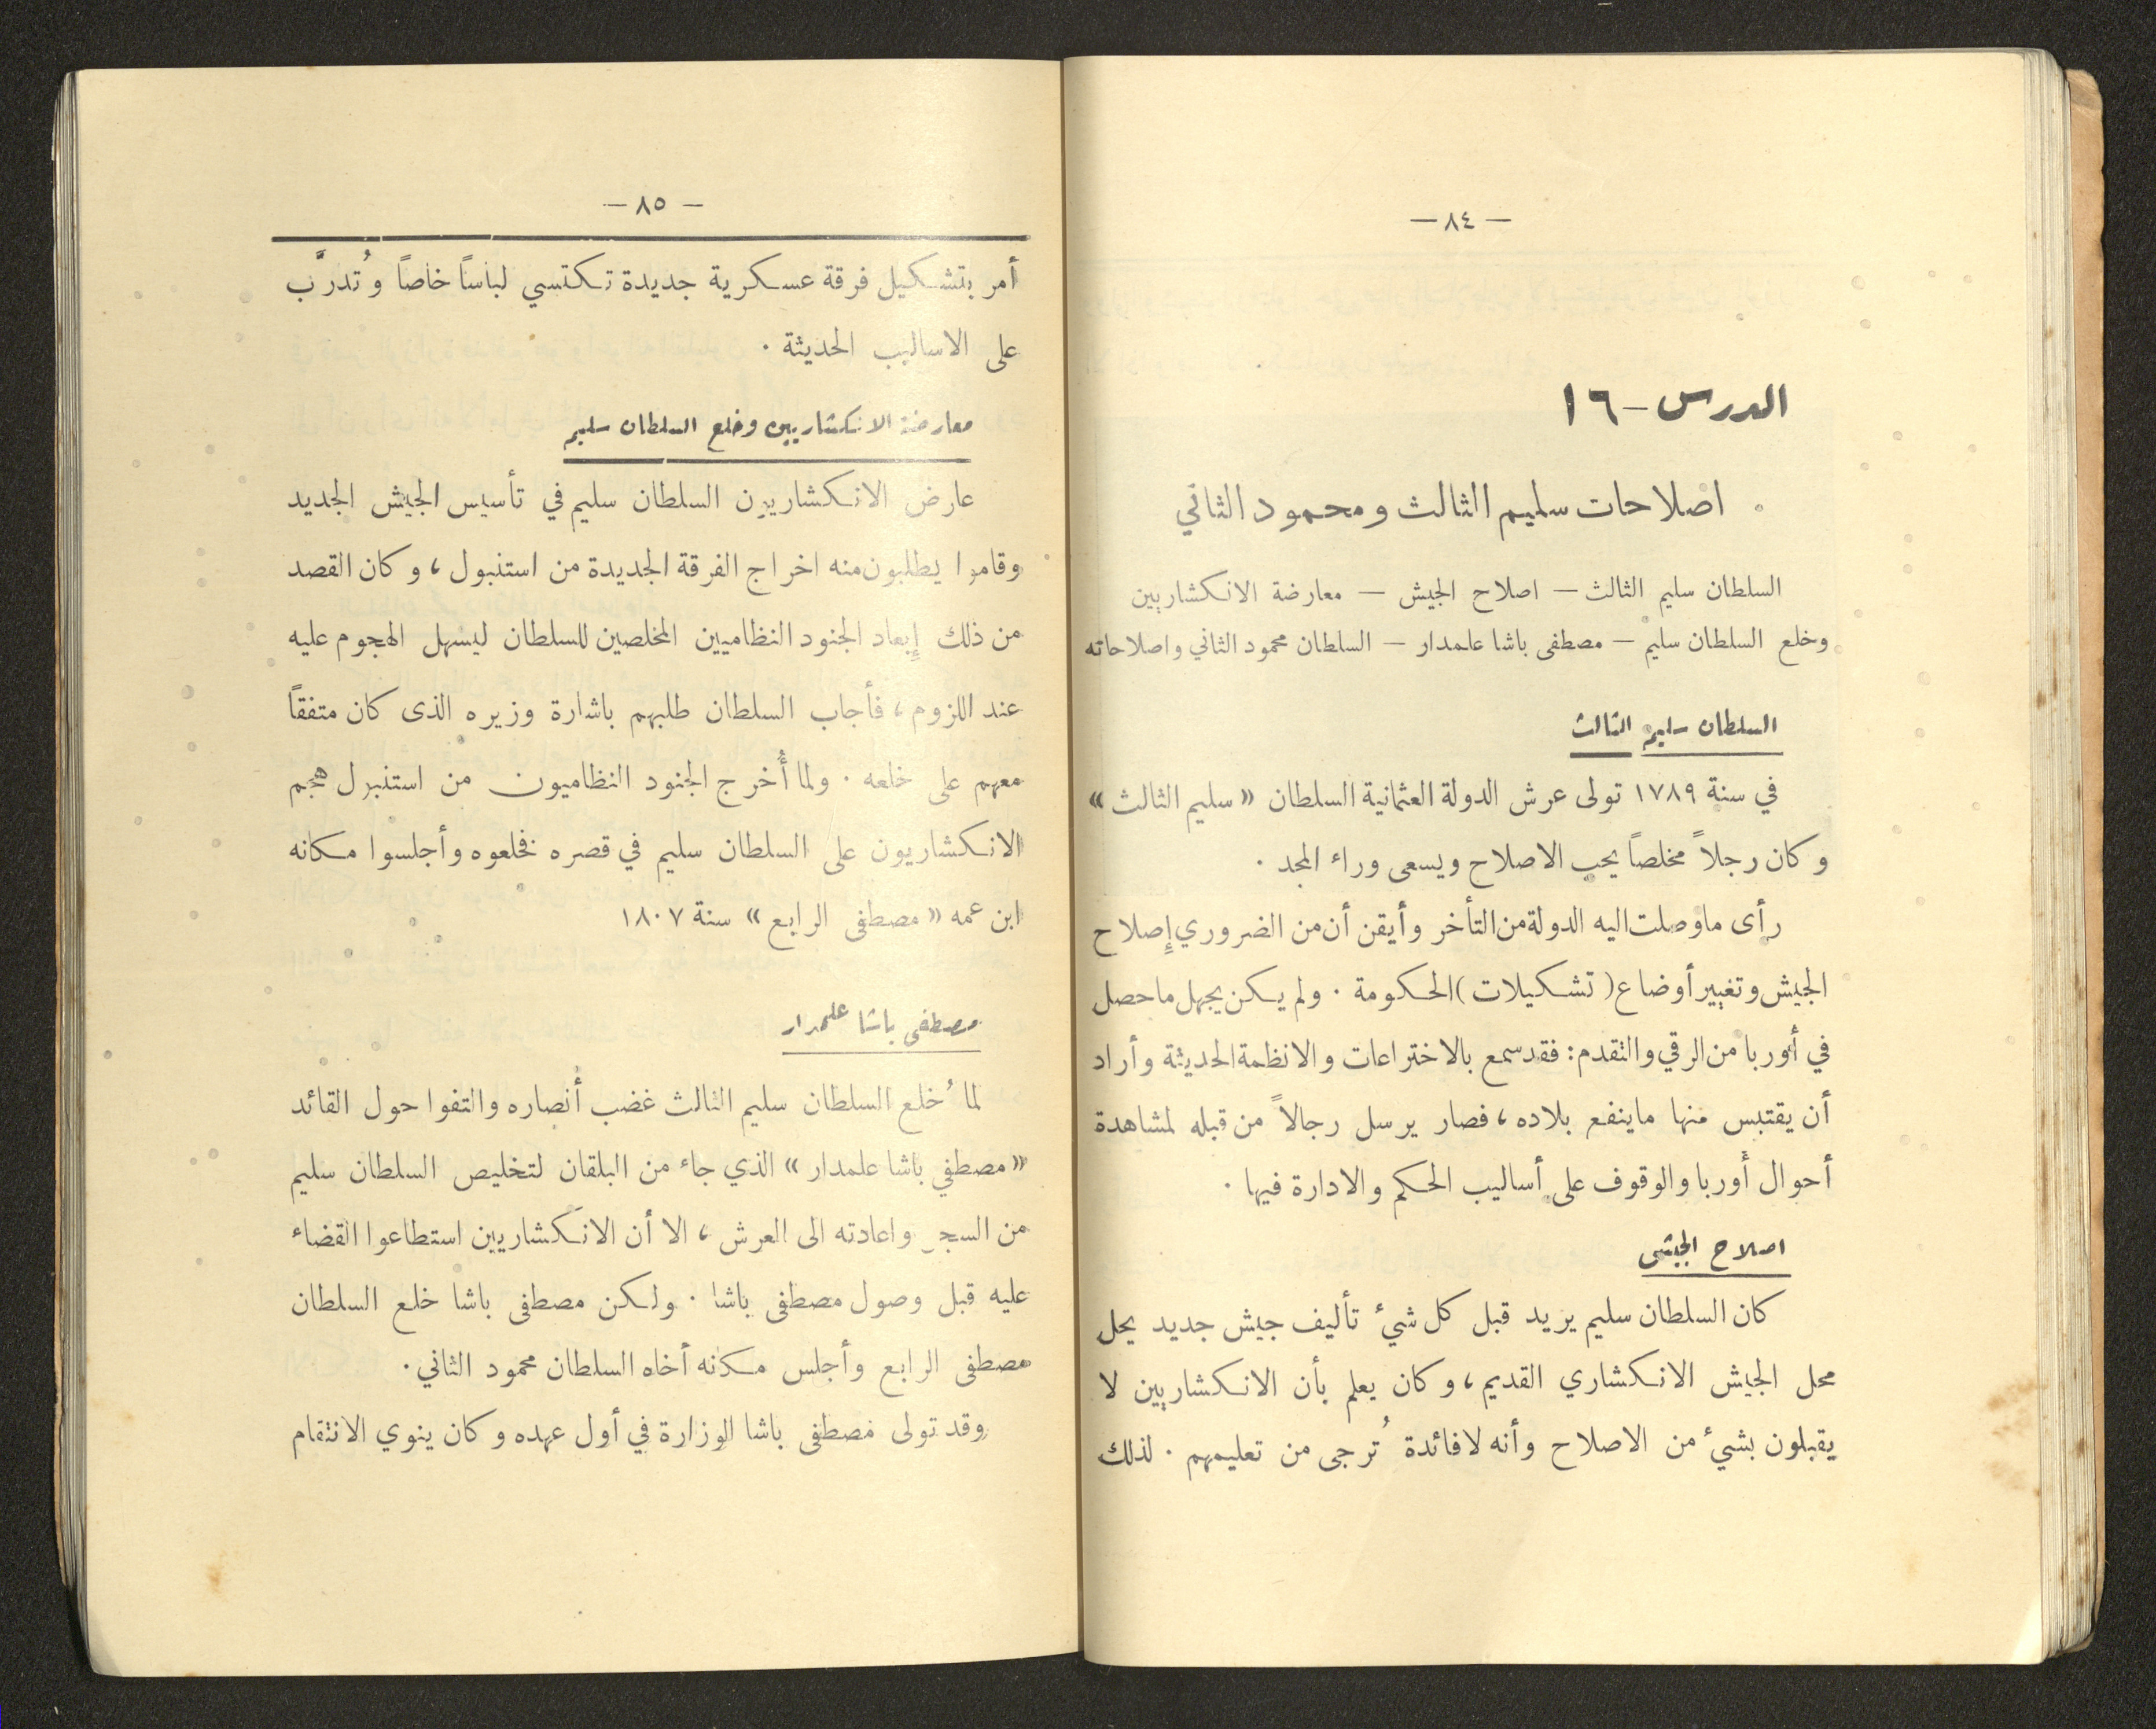 — ٨٤ —
الدرس – ١٦
اصلاحات سليم الثالث ومحمود الثاني
السلطان سليم الثالث — اصلاح الجيش — معارضة الانكشاريين
وخلع السلطان سليم — مصطفى باشا علمدار — السلطان محمود الثاني واصلاحاته
السلطان سليم الثالث
في سنة ١٧٨٩ تولى عرش الدولة العثمانية السلطان «سليم الثالث»
وكان رجلاً مخلصاً يحب الاصلاح ويسعى وراء المجد .
رأى ماوصلت اليه الدولة من التأخر وأيقن أن من الضروري إصلاح
الجيش وتغيير أوضاع (تشكيلات) الحكومة . ولم يكن يجهل ما حصل
في أوربا من الرقي والتقدم : فقد سمع بالاختراعات والانظمة الحديثة وأراد
أن يقتبس منها ماينفع بلاده ، فصار يرسل رجالاً من قبله لمشاهدة
أحوال أوربا والوقوف على أساليب الحكم والادارة فيها .
اصلاح الجيش
كان السلطان سليم يريد قبل كل شيء تأليف جيش جديد يحل
محل الجيش الانكشاري القديم ، وكان يعلم بأن الانكشاريين لا
يقبلون بشيء من الاصلاح وأنه لافائدة تُرجى من تعليمهم . لذلك
— ٨٥ —
أمر بتشكيل فرقة عسكرية جديدة تكتسي لباساً خاصاً وتُدرَّب
على الاساليب الحديثة .
معارضة الانكشاريين وخلع السلطان سليم
عارض الانكشاريون السلطان سليم في تأسيس الجيش الجديد
وقاموا يطلبون منه اخراج الفرقة الجديدة من استنبول ، وكان القصد
من ذلك إبعاد الجنود النظاميين المخلصين للسلطان ليسهل الهجوم عليه
عند اللزوم ، فأجاب السلطان طلبهم باشارة وزيره الذى كان متفقاً
معهم على خلعه . ولما أُخرج الجنود النظاميون من استنبول هجم
الانكشاريون على السلطان سليم في قصره فخلعوه وأجلسوا مكانه
ابن عمه «مصطفى الرابع» سنة ١٨٠٧
مصطفى باشا علمدار
لما خُلع السلطان سليم الثالث غضب أنصاره والتفوا حول القائد
«مصطفي باشا علمدار» الذي جاء من البلقان لتخليص السلطان سليم
من السجن واعادته الى العرش ، الا أن الانكشاريين استطاعوا القضاء
عليه قبل وصول مصطفى باشا . ولكن مصطفى باشا خلع السلطان
مصطفى الرابع وأجلس مكانه أخاه السلطان محمود الثاني .
وقد تولى مصطفى باشا الوزارة في أول عهده وكان ينوي الانتقام